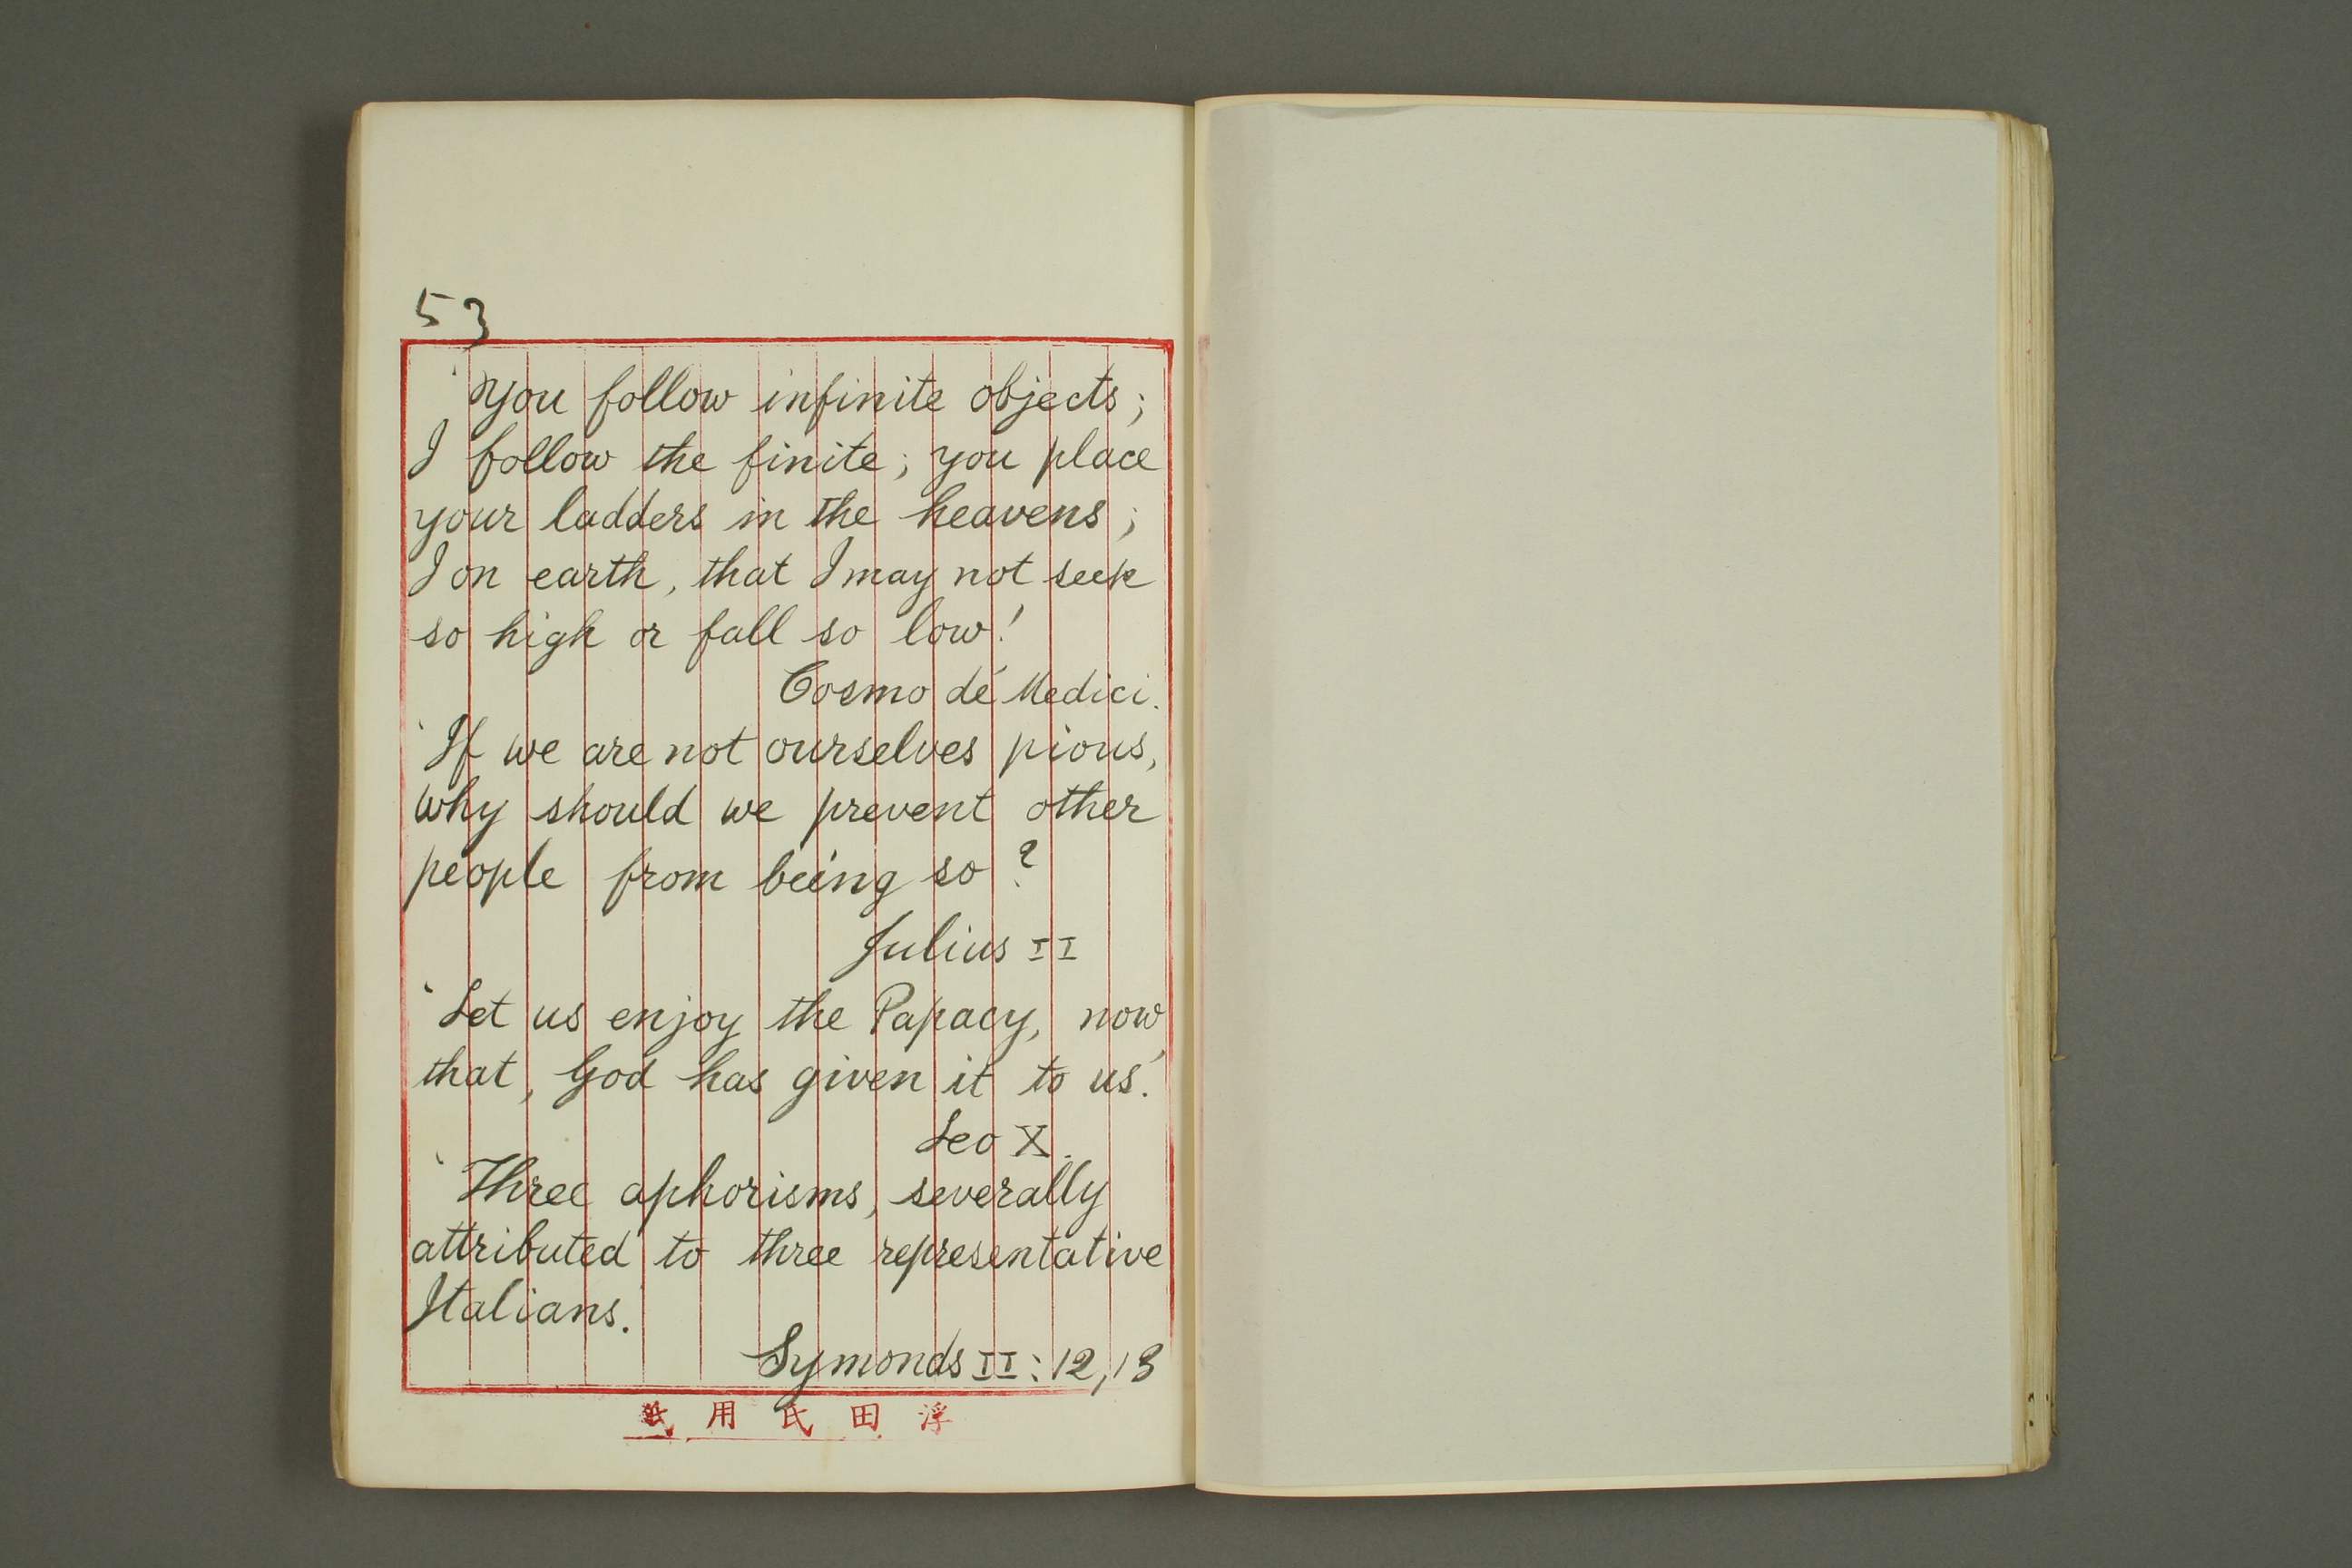 53
'You follow infinite objects;
I follow the finite; you place
your ladders in the heavens;
I on earth, that I may not seek
so high or fall so low!'
Cosmo de' Medici.
'If we are not ourselves pious,
why should we prevent other
people from being so?
Julius II
'Let us enjoy the Papacy, now
that, God has given it to us.'
Leo X.
'Three aphorisms, severally
attributed to three representative
Italians.'
Symonds II: 12, 13
浮田氏用紙